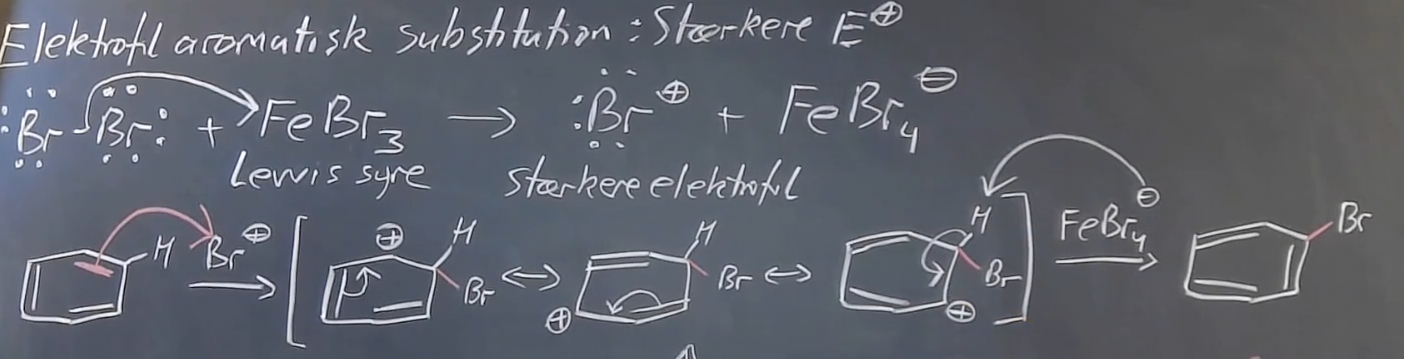 Elektrofil aromatisk substitution: Stærkere E⊕
:Br-Br: + FeBr₃ → :Br⊕ + FeBr₄⊖
Lewis syre stærkere elektrofil
H Br⊕ → [ ⊕ H Br ↔ ⊕ H Br ↔ ⊕ H Br ] FeBr₄⊖ → Br